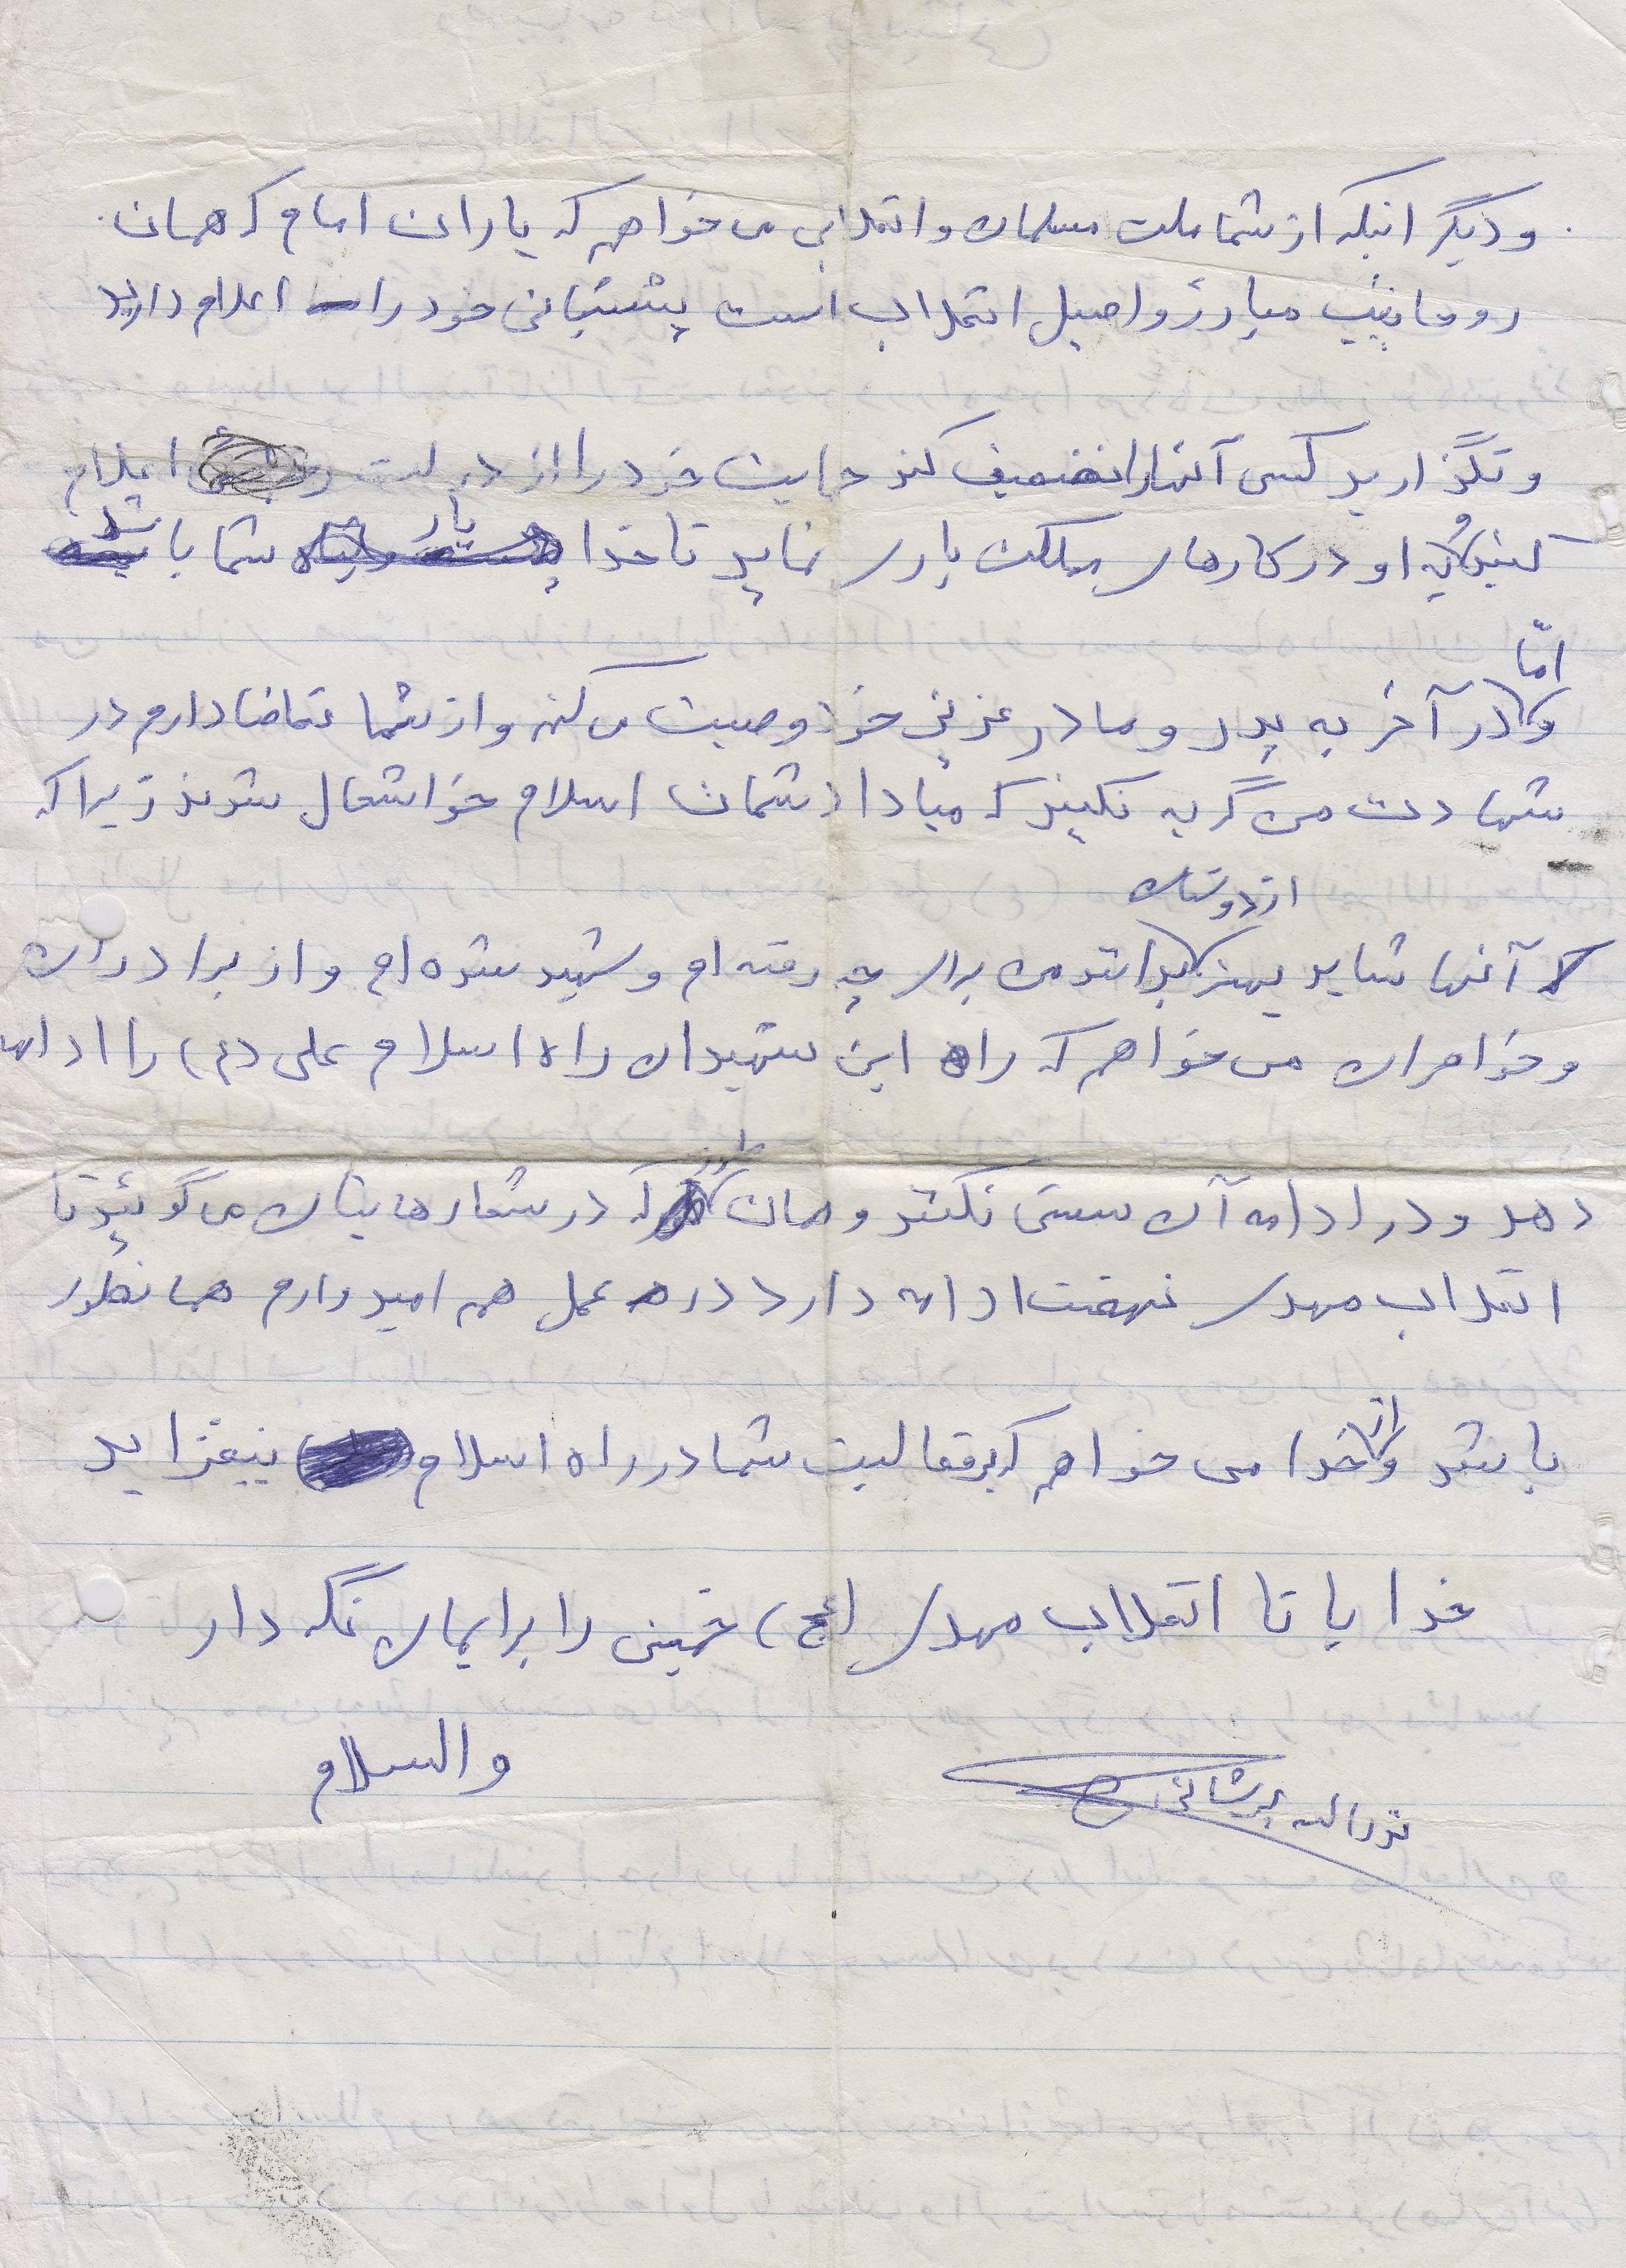 و دیگر اینکه از شما ملت مسلمان و انقلابی می خواهم که یاران امام که همان
روحانیت مبارز و اصیل انقلاب است پشتیبانی خود را اعلام دارید
و نگذارید کسی آنها را تضعیف کند حمایت خود را از دولت اعلام
کنید و به او در کارهای مملکت یاری نماید تا خدا یار شما باشد
امّا
در آخر به پدر و مادر عزیز خود وصیت می کنم و از شما تقاضا دارم در
شهادت من گریه نکنید که مبادا دشمنان اسلام خواشحال شوند زیرا که
از دوستان
آنها شاید بهتر بدانند من برای چه رفته ام و شهید شده ام و از برادران
و خواهران می خواهم که راه این شهیدان راه اسلام علی (ع) را ادامه
دهد و در ادامه آن سستی نکند و همان طور که در شعارهایتان می گوئید تا
انقلاب مهدی نهضت ادامه دارد در عمل هم امیدوارم همانطور
باشد از خدا می خواهم که بر فعالیت شما در راه اسلام بیفزاید
خدایا تا انقلاب مهدی (عج) خمینی را برایمان نگه دار
والسلام
نورالله